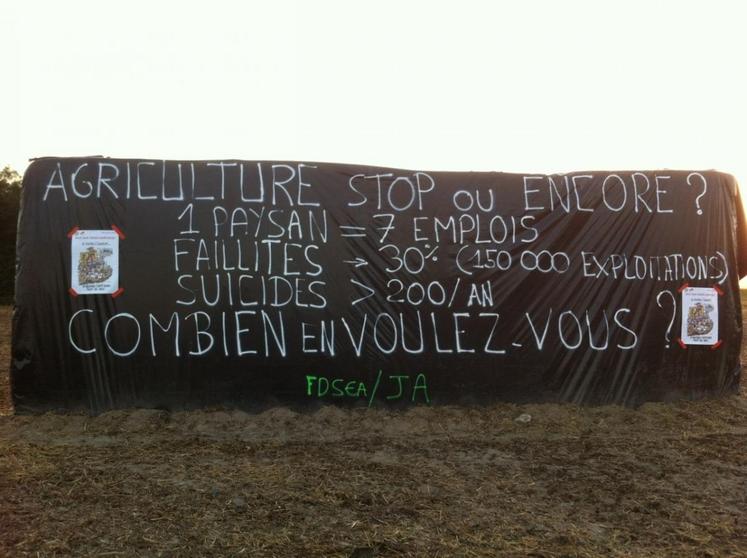 AGRICULTURE STOP OU ENCORE ?
1 PAYSAN = 7 EMPLOIS
FAILLITES → 30% (150 000 EXPLOITATIONS)
SUICIDES > 200/AN
COMBIEN EN VOULEZ-VOUS ?
FDSEA/JA